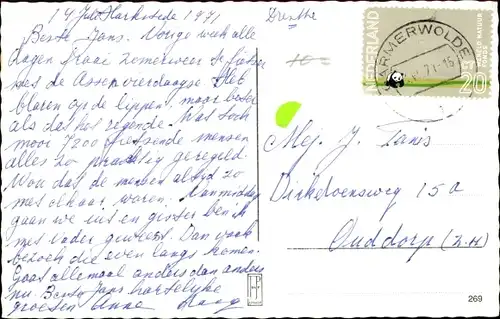 14 Juli Harkstede 1971
Drenthe
Beste Jans. Vorige week alle
dagen fraai zomerweer te fietsen
met de Assen vierdaagse. Met
blaren op de lippen, maar beter
als dat het regende. Was toch
mooi 7200 fietsende mensen
alles zo prachtig geregeld.
Wou dat de mensen altijd zo
met elkaar waren. Vanmiddag
gaan we uit en gister ben ik
met vader geweest. Dan vaak
bezoek die even langs komen.
Gaat allemaal anders dan anders
nu. Beste Jans hartelijke
groeten Anne
Mej. J. Tanis
Dirkdoensweg 15a
Ouddorp (Z.H)
NEDERLAND
20
HARMERWOLDE
269